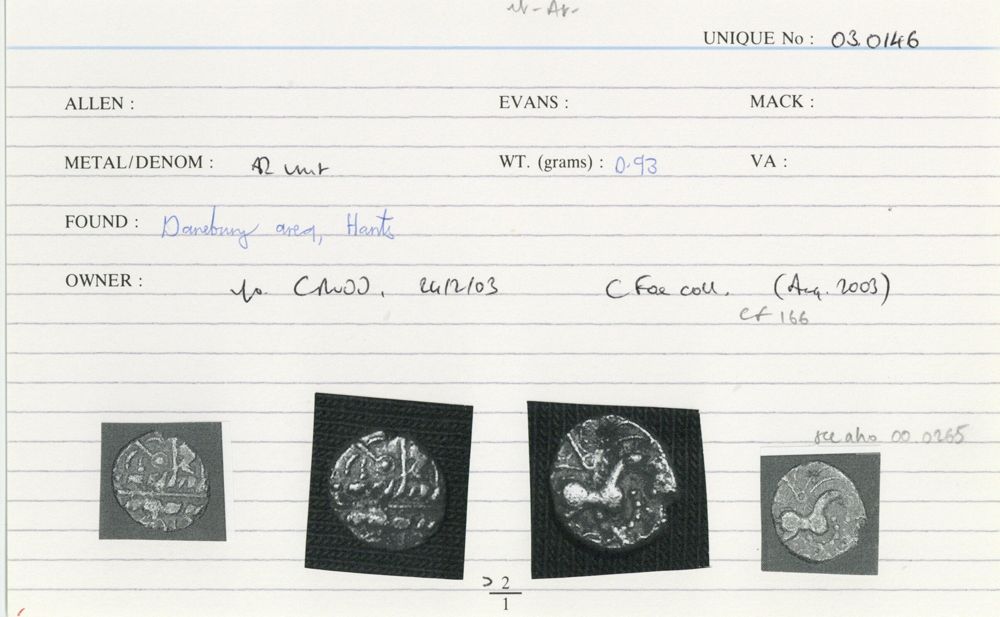 UNIQUE No : 03.0146
ALLEN : EVANS : MACK :
METAL/DENOM : AR unit WT. (grams) : 0.93 VA :
FOUND : Danebury area, Hants
OWNER : 24/2/03 C Foe coll. (Aug. 2003)
cf 166
see also 00.0265
> 2
1